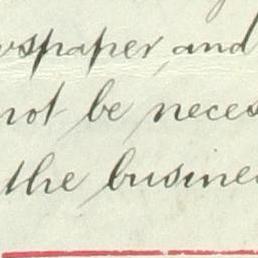 wspaper, and
not be neces
the busines